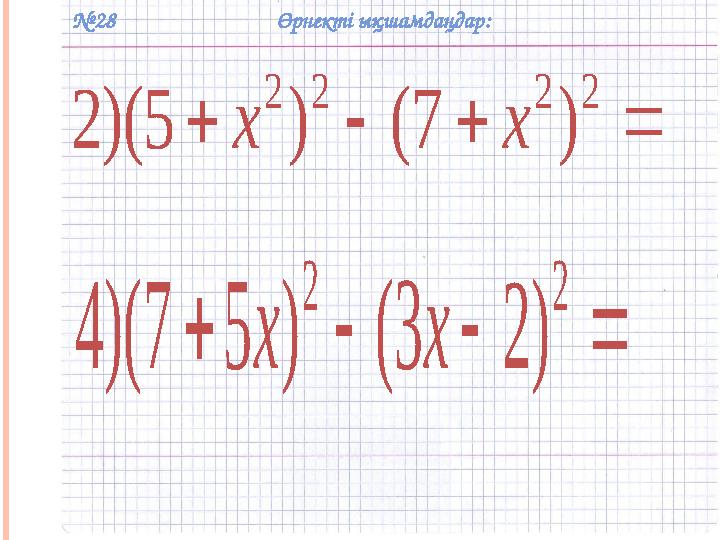 №28 Өрнекті ықшамдаңдар:
2)(5 + x²)² - (7 + x²)² =
4)(7 + 5x)² - (3x - 2)² =